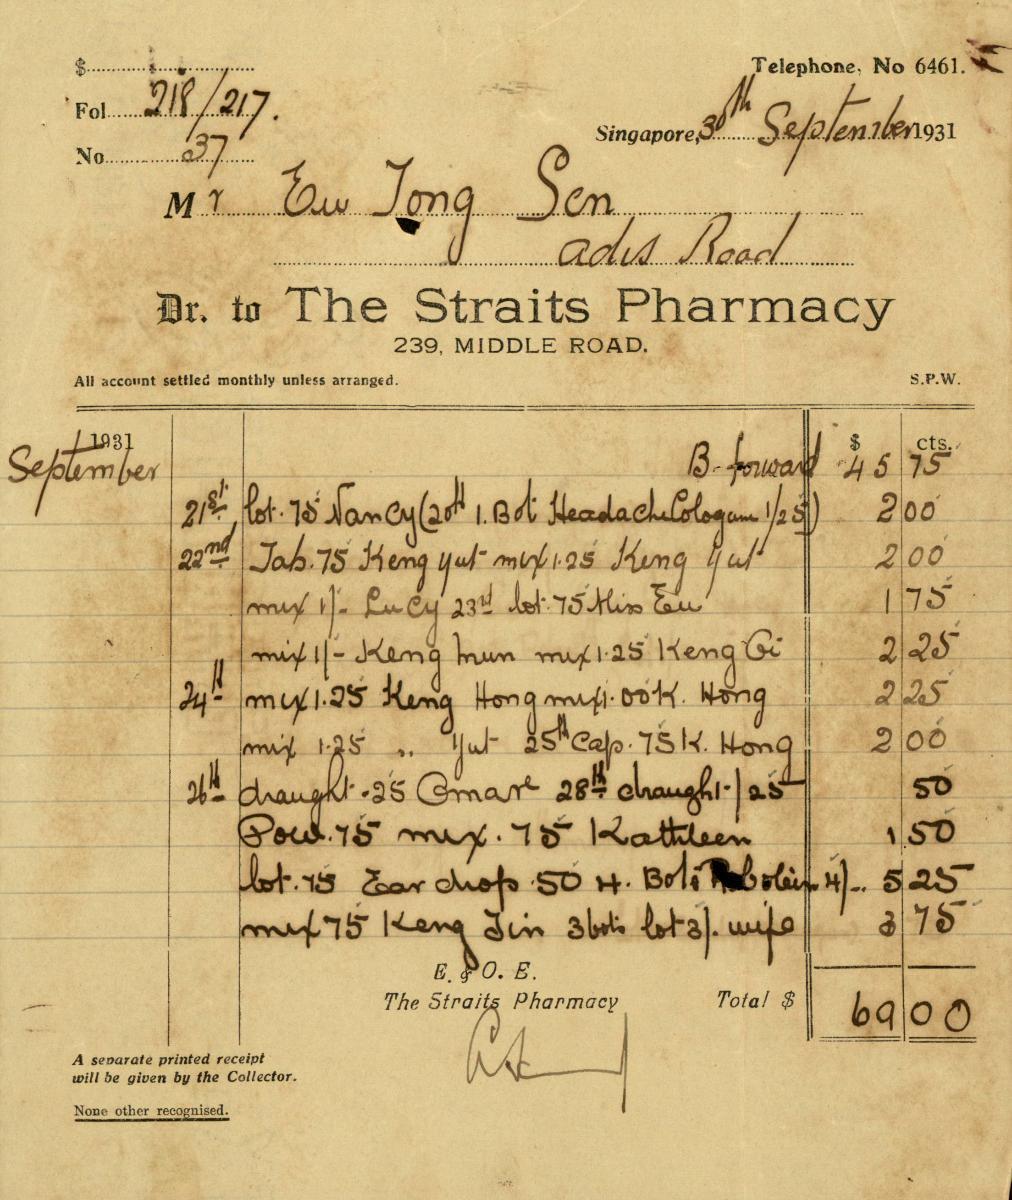 $
Telephone, No 6461.
Fol 218/217.
Singapore, 30th September 1931
No 37
Mr Eu Tong Sen
Adis Road
Dr. to The Straits Pharmacy
239, MIDDLE ROAD.
All account settled monthly unless arranged.
S.P.W.
1931 $ cts.
September B. forward 45 75
21st lot .75 Nancy (20th 1. Bot Headache Cologne 1/25) 2 00
22nd Tab. 75 Keng Yut mix 1.25 Keng Yut 2 00
mix 1/- Lucy 23rd lot .75 Miss Eu 1 75
mix 1/- Keng Mun mix 1.25 Keng Gi 2 25
24th mix 1.25 Keng Hong mix 1.00 K. Hong 2 25
mix 1.25 ,, Yut 25th Cap. 75 K. Hong 2 00
26th draught .25 28th draught /25 50
Pow. 75 mix. 75 Kathleen 1 50
lot. 75 Ear drop .50 H. Bot 4/- 5 25
mix 75 Keng Tin 3 bots lot 3/. wife 3 75
E. & O. E.
The Straits Pharmacy Total $ 69 00
A separate printed receipt
will be given by the Collector.
None other recognised.